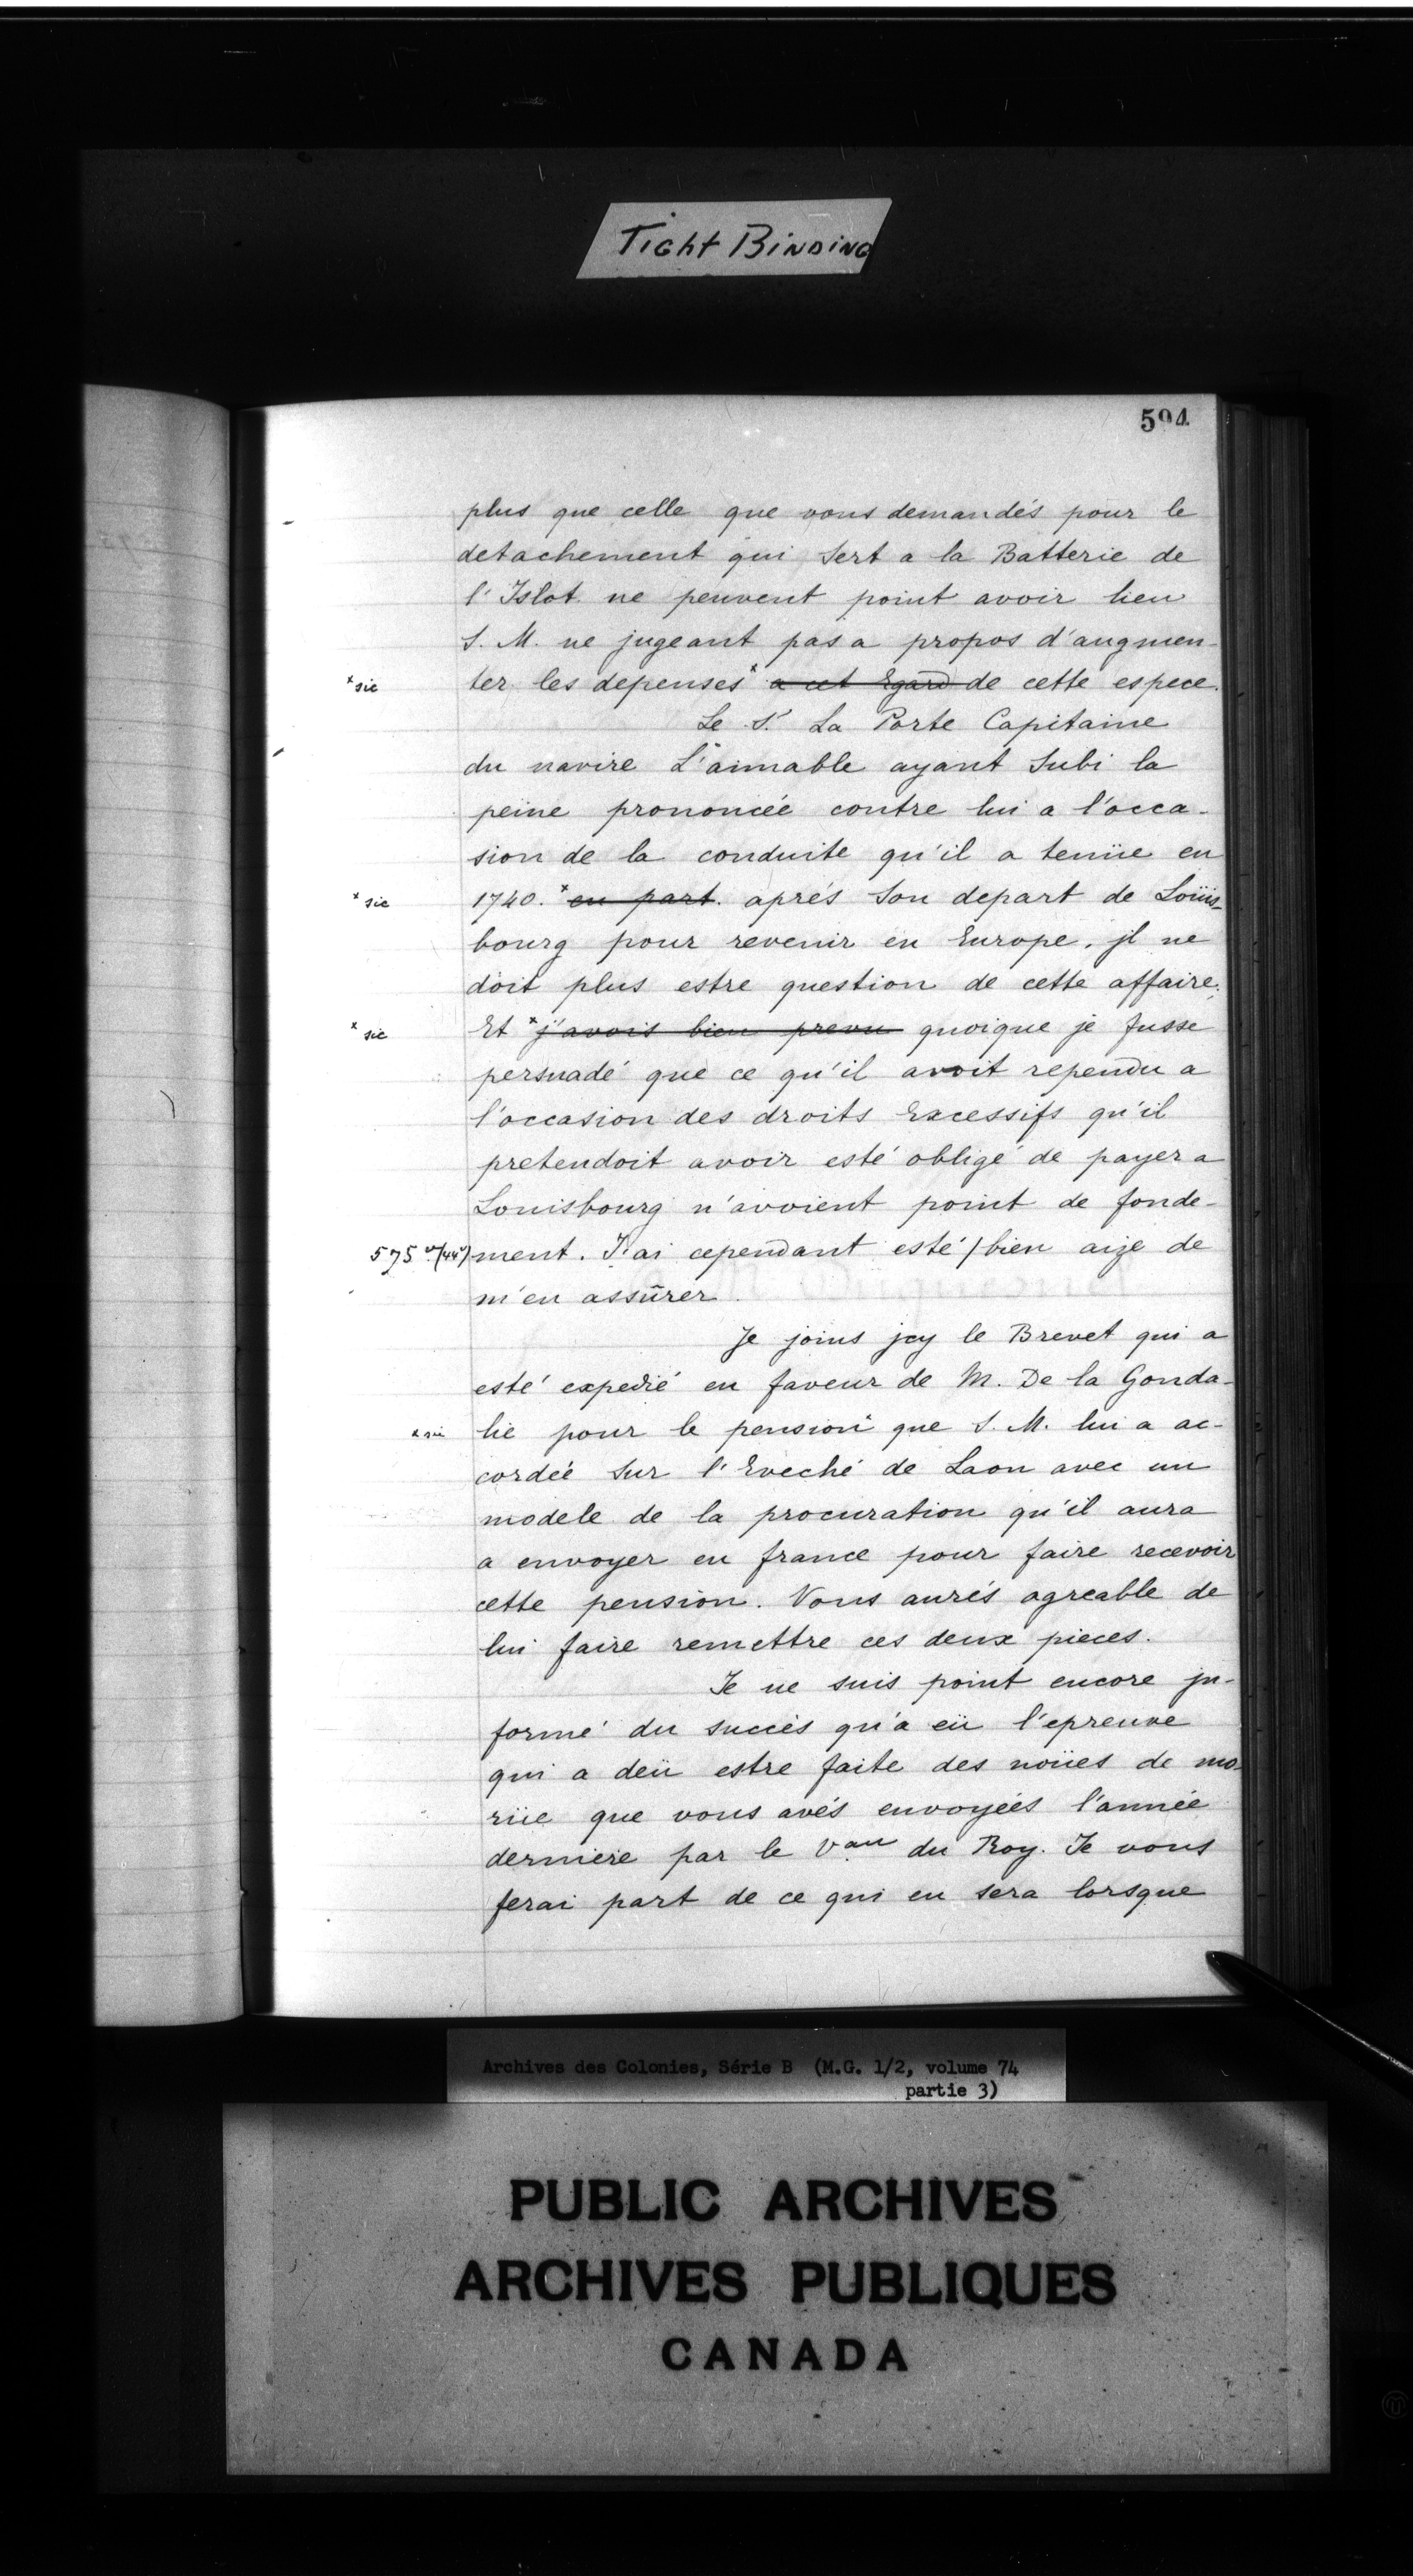 Tight Binding
594
plus que celle que vous demandés pour le
detachement qui sert a la Batterie de
l'Islot ne peuvent point avoir lieu
S. M. ne jugeant pas a propos d'augmen-
x sic ter les depenses x a cet Egard de cette espece.
Le Sr. La Porte Capitaine
du navire L'aimable ayant subi la
peine prononcée contre lui a l'occa-
sion de la conduite qu'il a tenüe en
x sic 1740. x en part. aprés son depart de Loüis-
bourg pour revenir en Europe, jl ne
doit plus estre question de cette affaire;
x sic Et x j'avois bien prevu quoique je fusse
persuadé que ce qu'il avoit rependu a
l'occasion des droits Excessifs qu'il
pretendoit avoir esté obligé de payer a
Louisbourg n'avoient point de fonde-
575 vo (44v) ment. J'ai cependant esté / bien aize de
m'en assûrer.
Je joins jcy le Brevet qui a
esté expedié en faveur de M. De la Gonda-
x sic lie pour le pension x que S. M. lui a ac-
cordée sur l'Eveché de Laon avec un
modele de la procuration qu'il aura
a envoyer en france pour faire recevoir
cette pension. Vous aurés agreable de
lui faire remettre ces deux pieces.
Je ne suis point encore jn-
formé du succès qu'a eü l'epreuve
qui a deü estre faite des noües de mo-
rüe que vous avés envoyéés l'année
derniere par le Vau du Roy. Je vous
ferai part de ce qui en sera lorsque
Archives des Colonies, Série B (M.G. 1/2, volume 74
partie 3)
PUBLIC ARCHIVES
ARCHIVES PUBLIQUES
CANADA